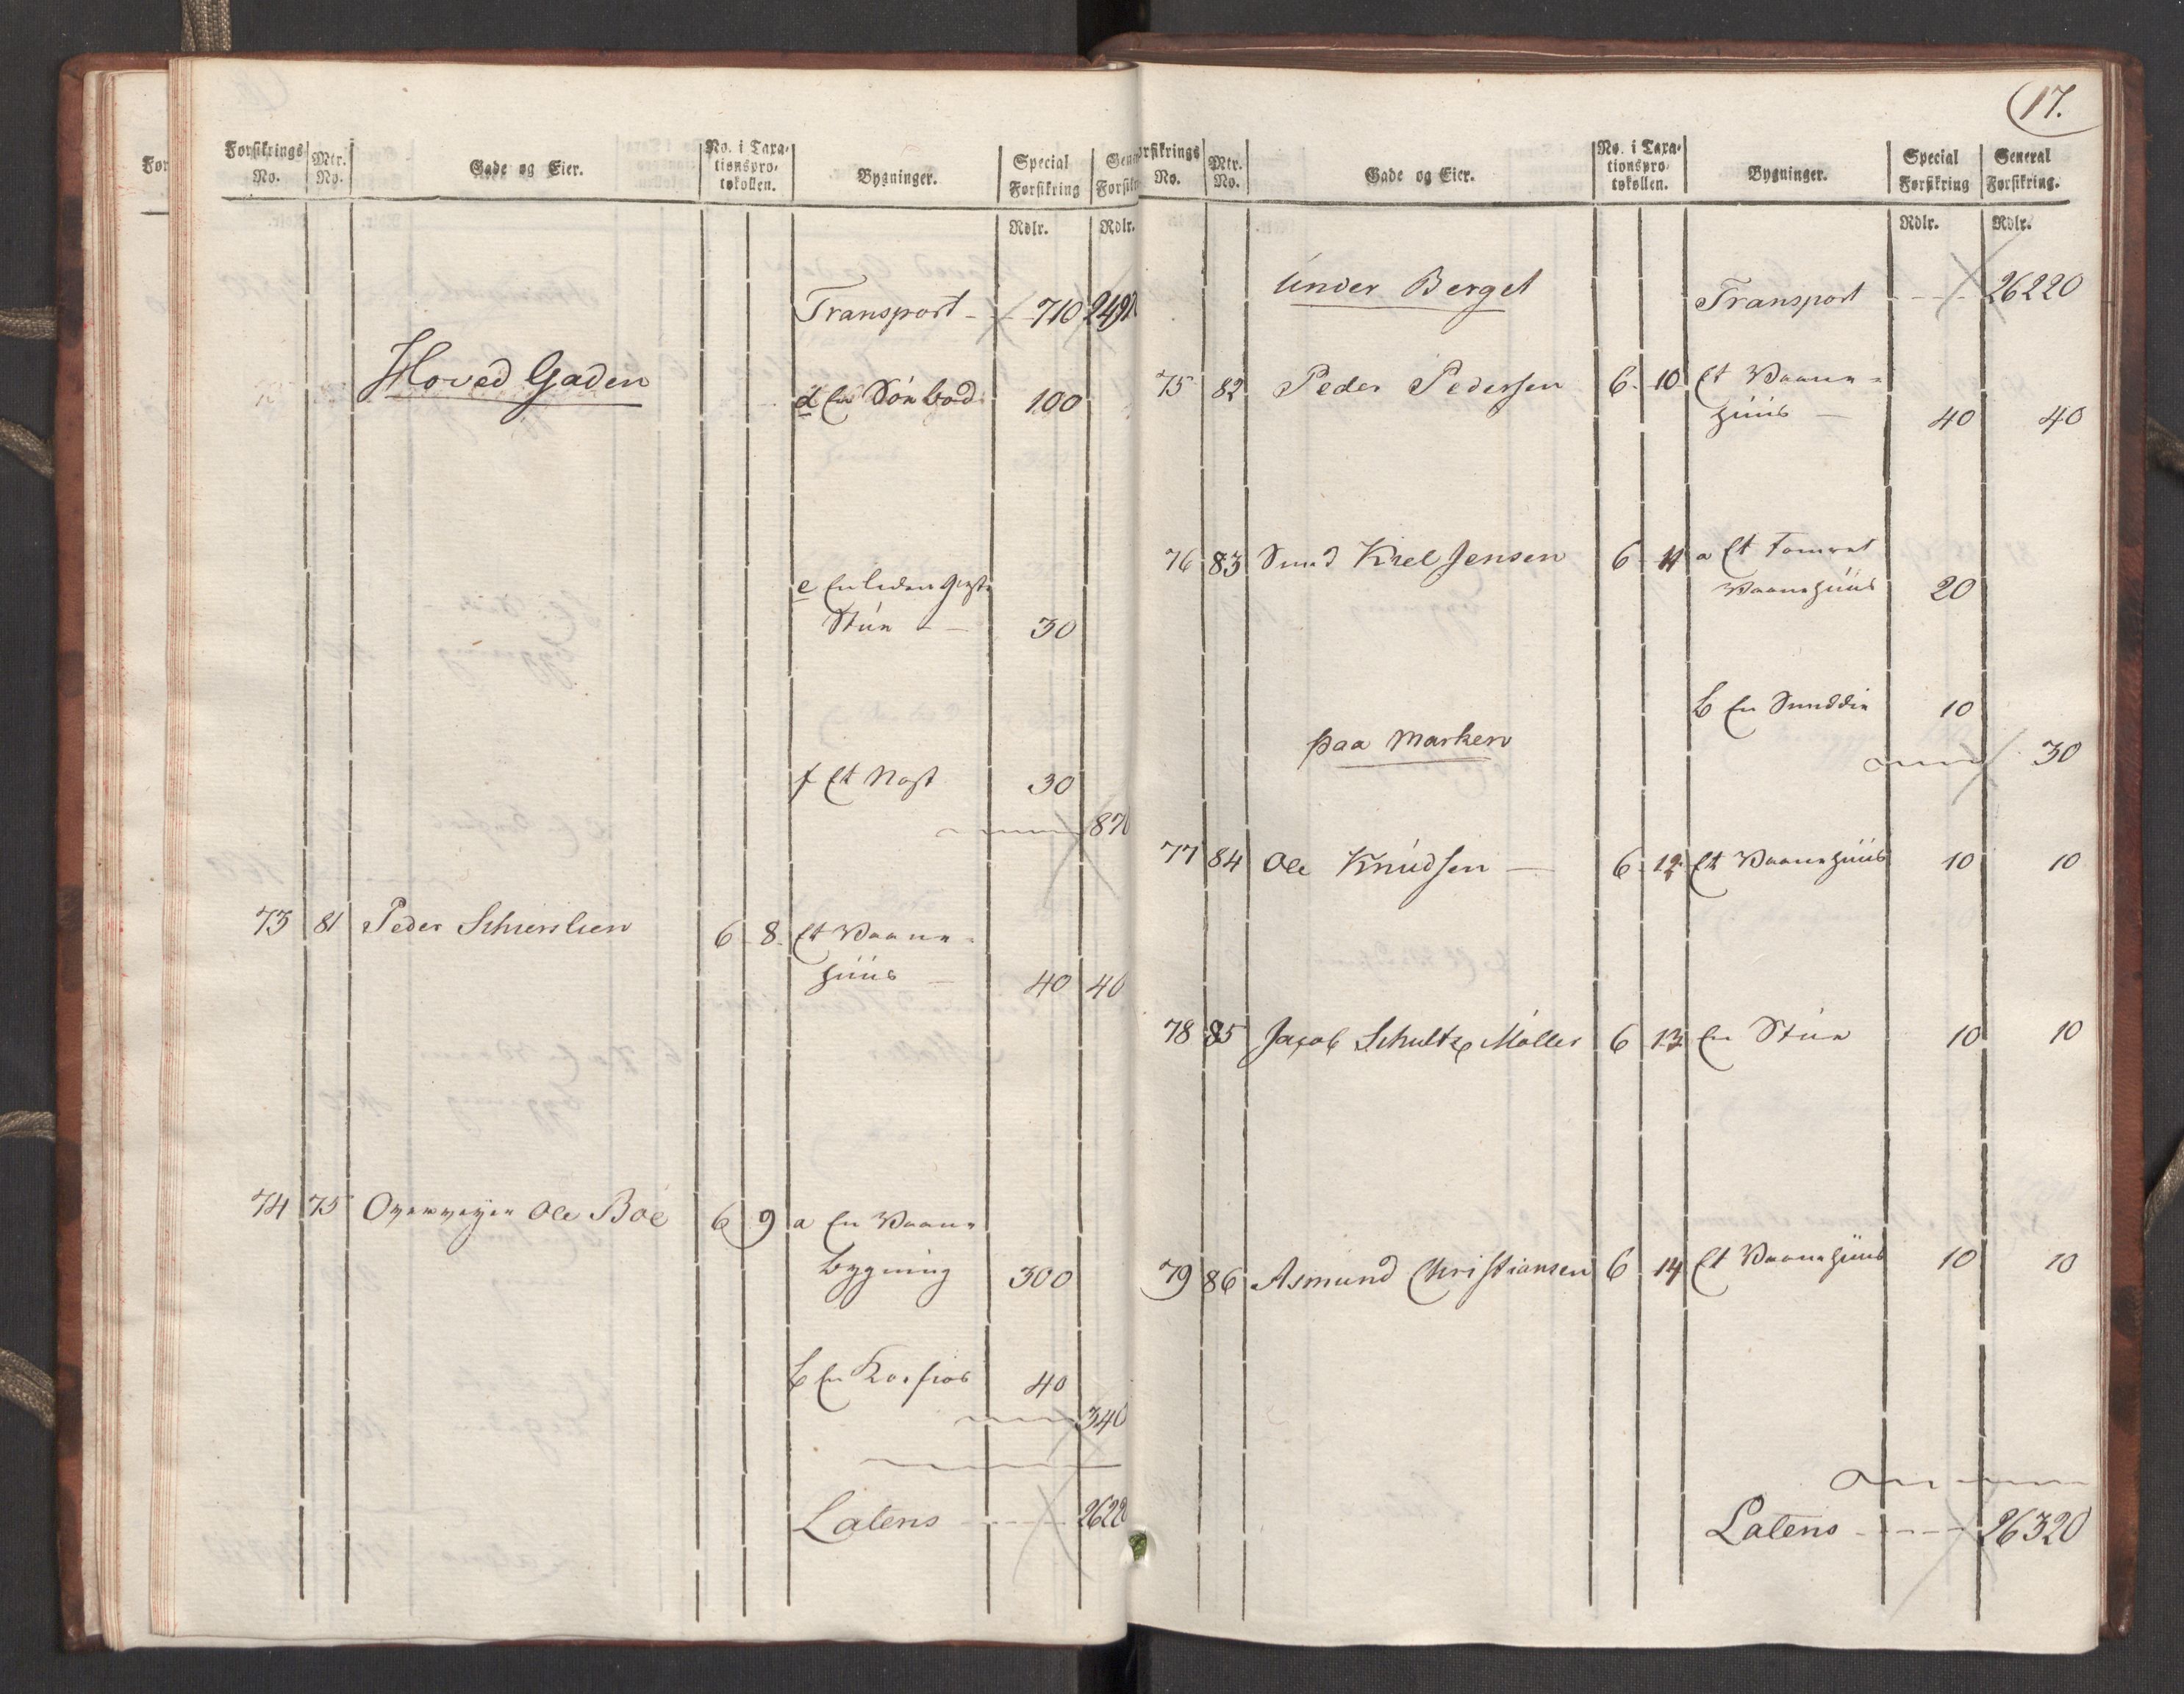 Forsikrings No. Mtr. No. Gade og Eier. No. i Taxationsprotokollen. Bygninger. Special Forsikring Gene Forsikr
Rdlr. Rdlr.
Transport - - 710 249
Hoved Gaden
d En Söe bod 100
e En liden
Stue - - 30
f Et Nøst 30
870
73 81 Peder Schierslien 6 8. Et Vaane-
huus - 40 40
74 75 Ole Böe 6 9 a En Vaane
bygning 300
b En 40
340
Lateris - - - - 26220
17.
orsikrings No. Mtr. No. Gade og Eier. No. i Taxationsprotokollen. Bygninger. Special Forsikring General Forsikring.
Rdlr. Rdlr.
Under Berget Transport - - - 26220
75 82 Peder Pedersen 6. 10 Et Vaane-
huus - 40 40
76 83 Smed Kiel Jensen 6 11 a Et Tømret
Vaanehuus 20
b En Smeddie 10
paa Marken
30
77 84 Ole Knudsen - 6 12. Et Vaanehuus 10 10
78 85 Jacob Schultz Möller 6 13 En Stue 10 10
79 86 Asmund Christiansen 6 14 Et Vaanehuus 10 10
Lateris - - - - 26320